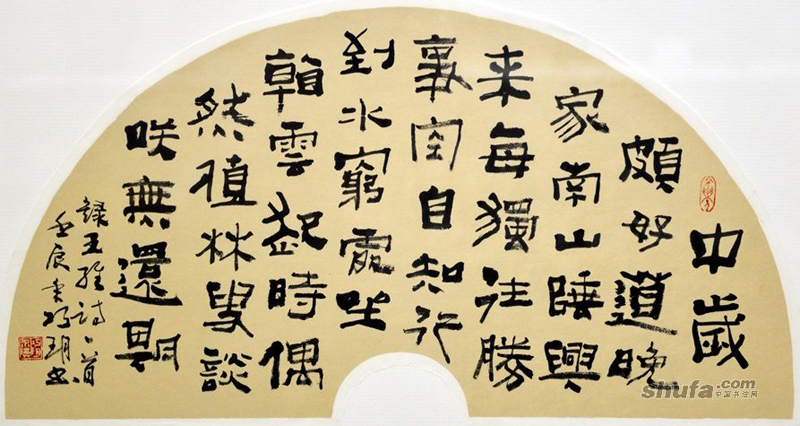 中歲
頗好道晚
家南山陲興
来每獨往勝
事空自知行
到水窮處坐
看雲起時偶
然值林叟談
咲無還期
錄王維詩一首
壬辰 书
shufa.com
中国书法网